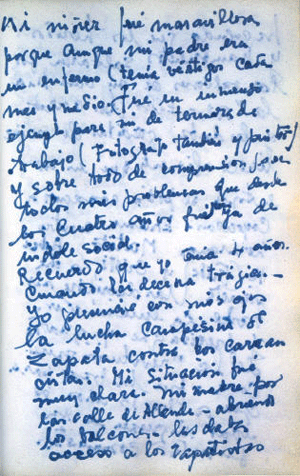 Mi niñez fué maravillosa
porque aunque mi padre era
un enfermo (tenía vértigos cada
mes y medio. Fué un inmenso
ejemplo para mi de ternura, de
trabajo (Fotógrafo también y pintor)
y sobre todo de comprensión para
todos mis problemas que desde
los cuatro años fueron ya de
indole social.
Recuerdo que yo tenia 4 años.
Cuando la decena trágica.
Yo presencié con mis ojos
la lucha campesina de
Zapata contra los carran
cistas. Mi situación fué
muy clara. mi madre por
las calle de Allende - abriendo
los balcones - les daba
acceso a los zapatistas